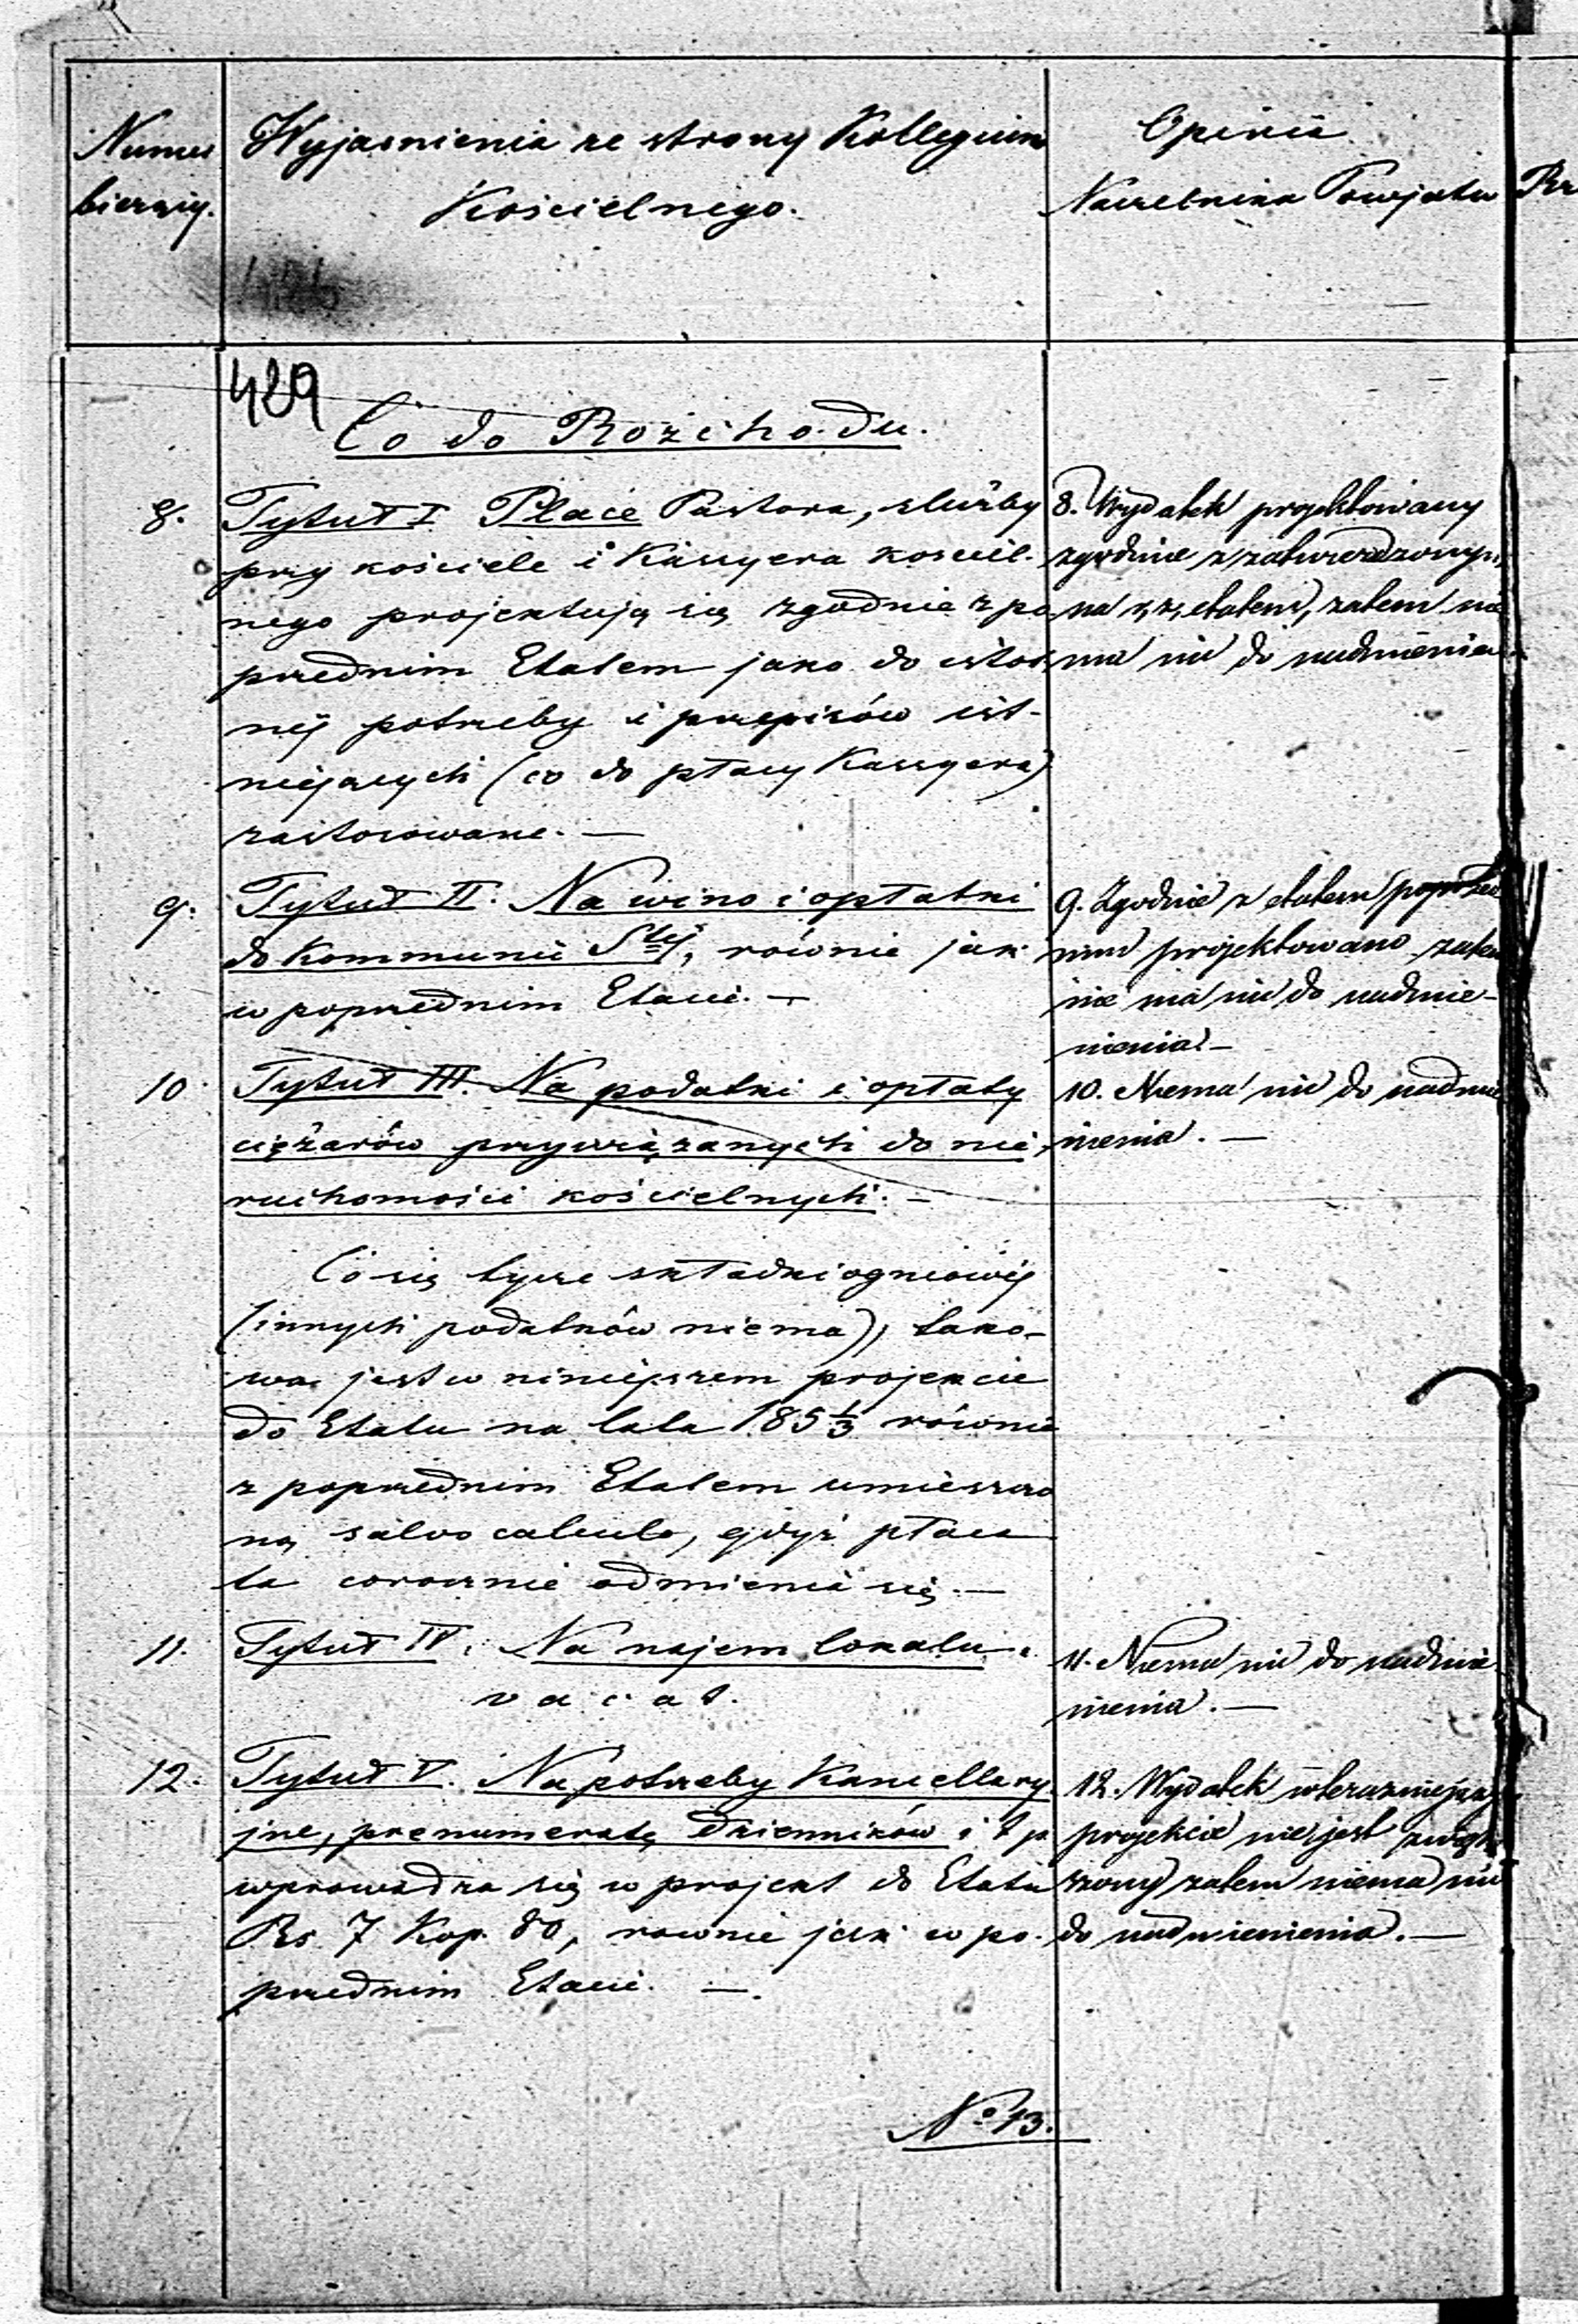 Numer
bieżący.
Wyjaśnienia ze strony Kollegium
Kościelnego.
Opinia
Naczelnika Powiatu
429
Co do Rozchodu.
8.
Tytuł I Płace Pastora, służby
przy kościele i Kassyera kościel-
nego projektują się zgodnie z po
przednim Etatem jako do istot
néj potrzeby i przepisów ist-
niejących (co do płacy Kassyera)
zastosowane. —
8. Wydatek projektowany
zgodnie z zatwierdzonym
na etatem, zatem nie
ma nic do nadmienienia
9.
Tytuł II. Na wino i opłatki
do Kommunii Stéj, równie jak
w poprzednim Etacie. —
9. Zgodnie z etatem poprzed
nim projektowano zatem
nie ma nic do nadmie-
nienia. —
10.
Tytuł III. Na podatki i opłaty
ciężarów przywiązanych do nie-
ruchomości kościelnych. —
10. Niema nic do nadmie
nienia. —
Co się tycze składki ogniowéj
(innych podatków niema), tako-
wa jest w niniejszem projekcie
do Etatu na lata 185 1/3 równie
z poprzednim Etatem umieszczo
ną salvo calculo, gdyż płaca
ta corocznie odmienia się. —
11.
Tytuł IV. Na najem lokalu.
vacat.
11. Niema nic do nadmie
nienia. —
12.
Tytuł V. Na potrzeby Kancellary-
jne, prenumeratę dzienników i t p.
wprowadza się w projekt do Etatu
Rs. 7 Kop. 80, rownie jak w po-
przednim Etacie. —.
12. Wydatek w teraźniejszym
projekcie nie jest zwięk
szony zatem niema nic
do nadmienienia. —
No 13.